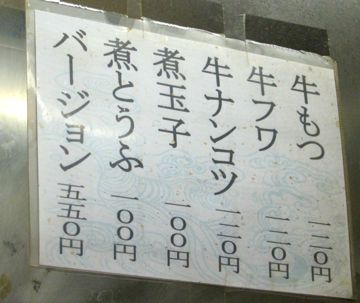 牛もつ 一二〇円
牛フワ 一二〇円
牛ナンコツ 一二〇円
煮玉子 一〇〇円
煮とうふ 一〇〇円
バージョン 五五〇円